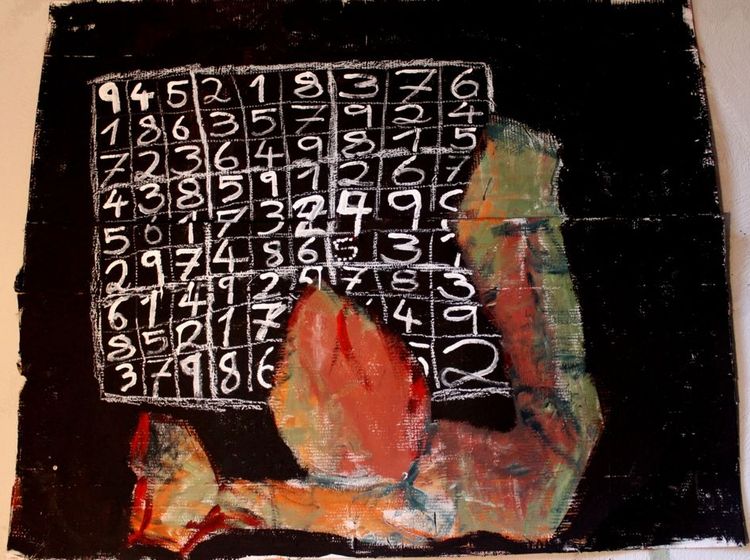 9 4 5 2 1 8 3 7 6
1 8 6 3 5 7 9 2 4
7 2 3 6 4 9 8 1 5
4 3 8 5 9 1 2 6 7
5 6 1 7 3 2 4 9
2 9 7 4 8 6 5 3 1
6 1 4 9 2 7 8 3
8 5 2 1 7 4 9
3 7 9 8 6 2